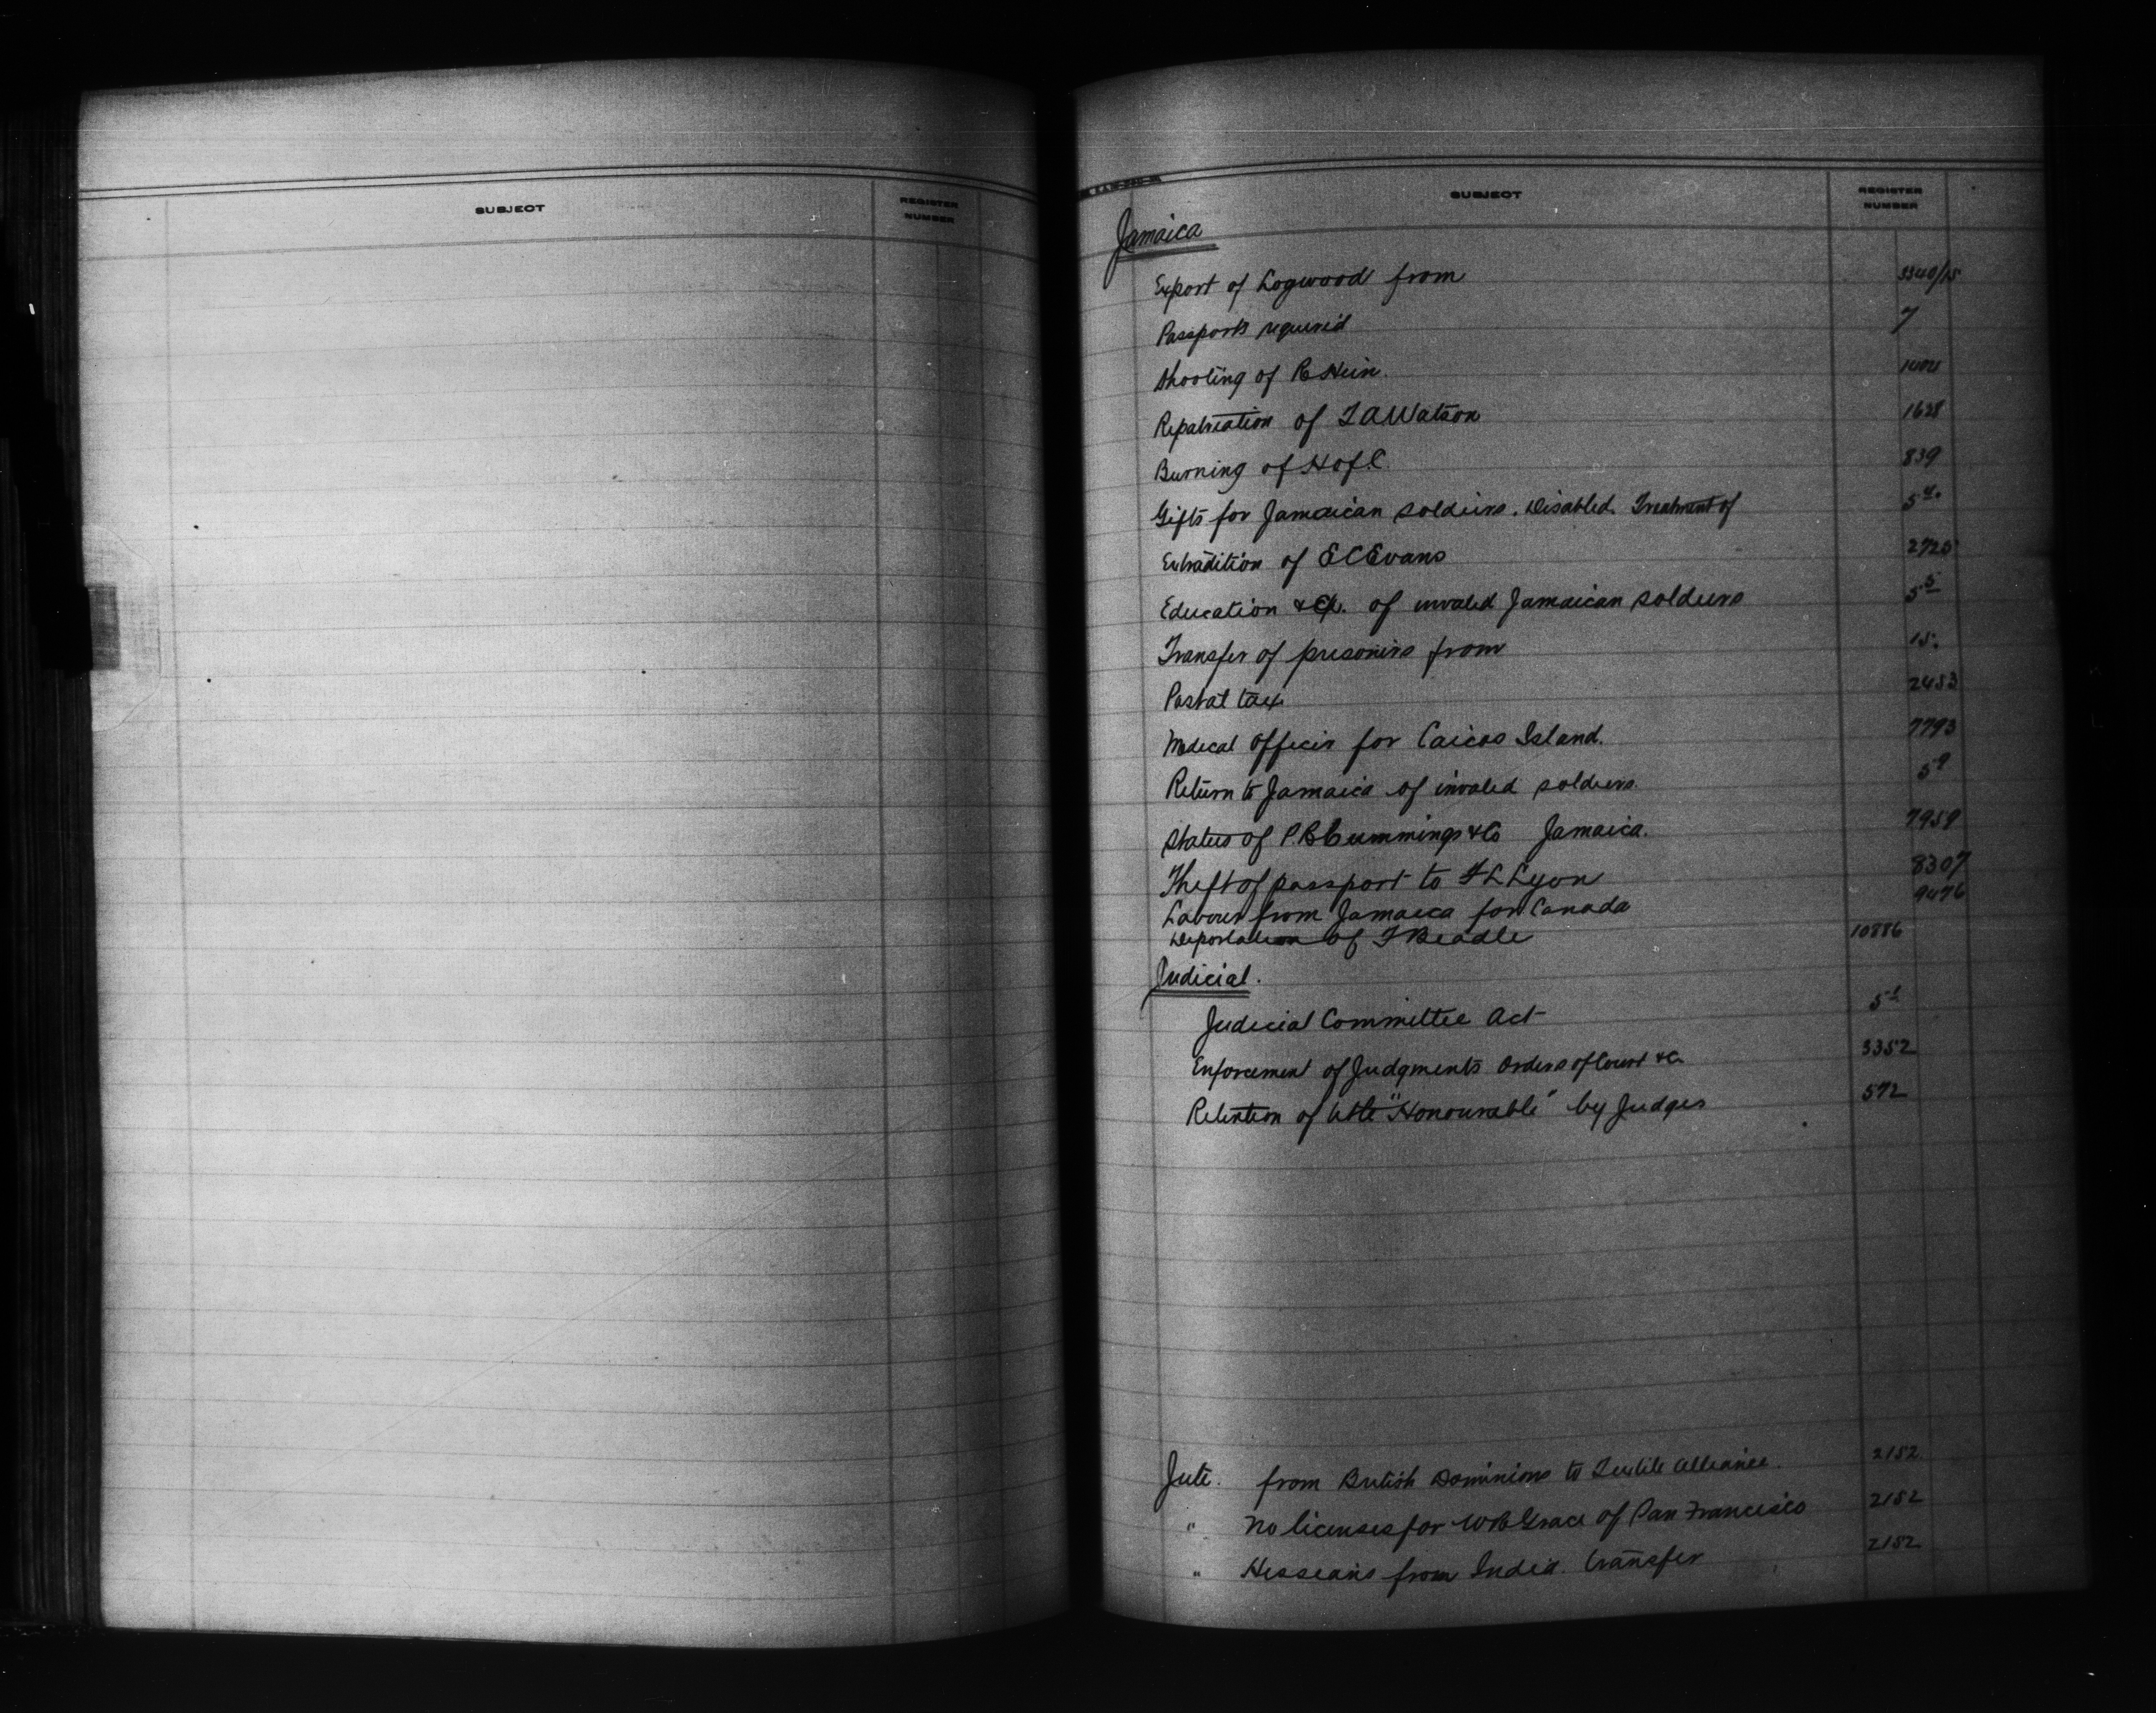 SUBJECT
REGISTER
NUMBER
SUBJECT
REGISTER
NUMBER
Jamaica
Export of Logwood from 3340/15
Passports required 7
Shooting of R Hein.
Repatriation of Watson 1628
Burning of H of C. 839
Gifts for Jamaican soldiers. Disabled. Treatment of
Extradition of E C Evans 2725
Education &c. of invalid Jamaican soldiers
Transfer of prisoners from 15.
Postal tax 2453
Medical Officer for Caicos Island. 7793
Return to Jamaica of invalid soldiers.
Status of P.B Cummings & Co Jamaica. 7959
Theft of passport to F L Lyon 8307
Labour from Jamaica for Canada 9476
Deportation of Beadle 10886
Judicial.
Judicial Committee Act
Enforcement of Judgments Orders of Court &c. 3352
Retention of title "Honourable" by Judges 572
Jute. from British Dominions to Textile Alliance. 2152
" No licenses for W R Grace of San Francisco 2152
" Hessians from India. transfer 2152